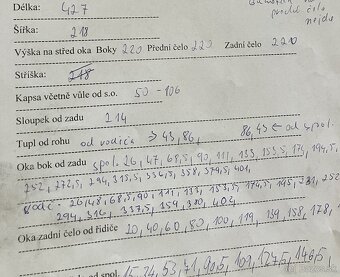 Délka: 427
Šířka: 218
prodl čelo
nejde
Výška na střed oka Boky 220 Přední čelo 220 Zadní čelo 2210
Stříška: 218
Kapsa včetně vůle od s.o. 50 - 106
Sloupek od zadu 214
Tupl od rohu od vodiča → 43, 86, 86, 43 ← od spol.
Oka bok od zadu spol. 26, 47, 68,5, 90, 111, 133, 153,5, 174, 194,5,
252, 272,5, 294, 315,5, 336,5, 358, 379,5, 401,
vodič = 26, 48, 68,5, 90, 111, 133, 153, 174,5, 195, 252
294, 316, 337,5, 359, 380, 402
Oka zadní čelo od řidiče 20, 40, 60, 80, 100, 119, 139, 158, 178, 1
od spol. 34, 53, 71, 90,5, 109, 127,5, 146,5,